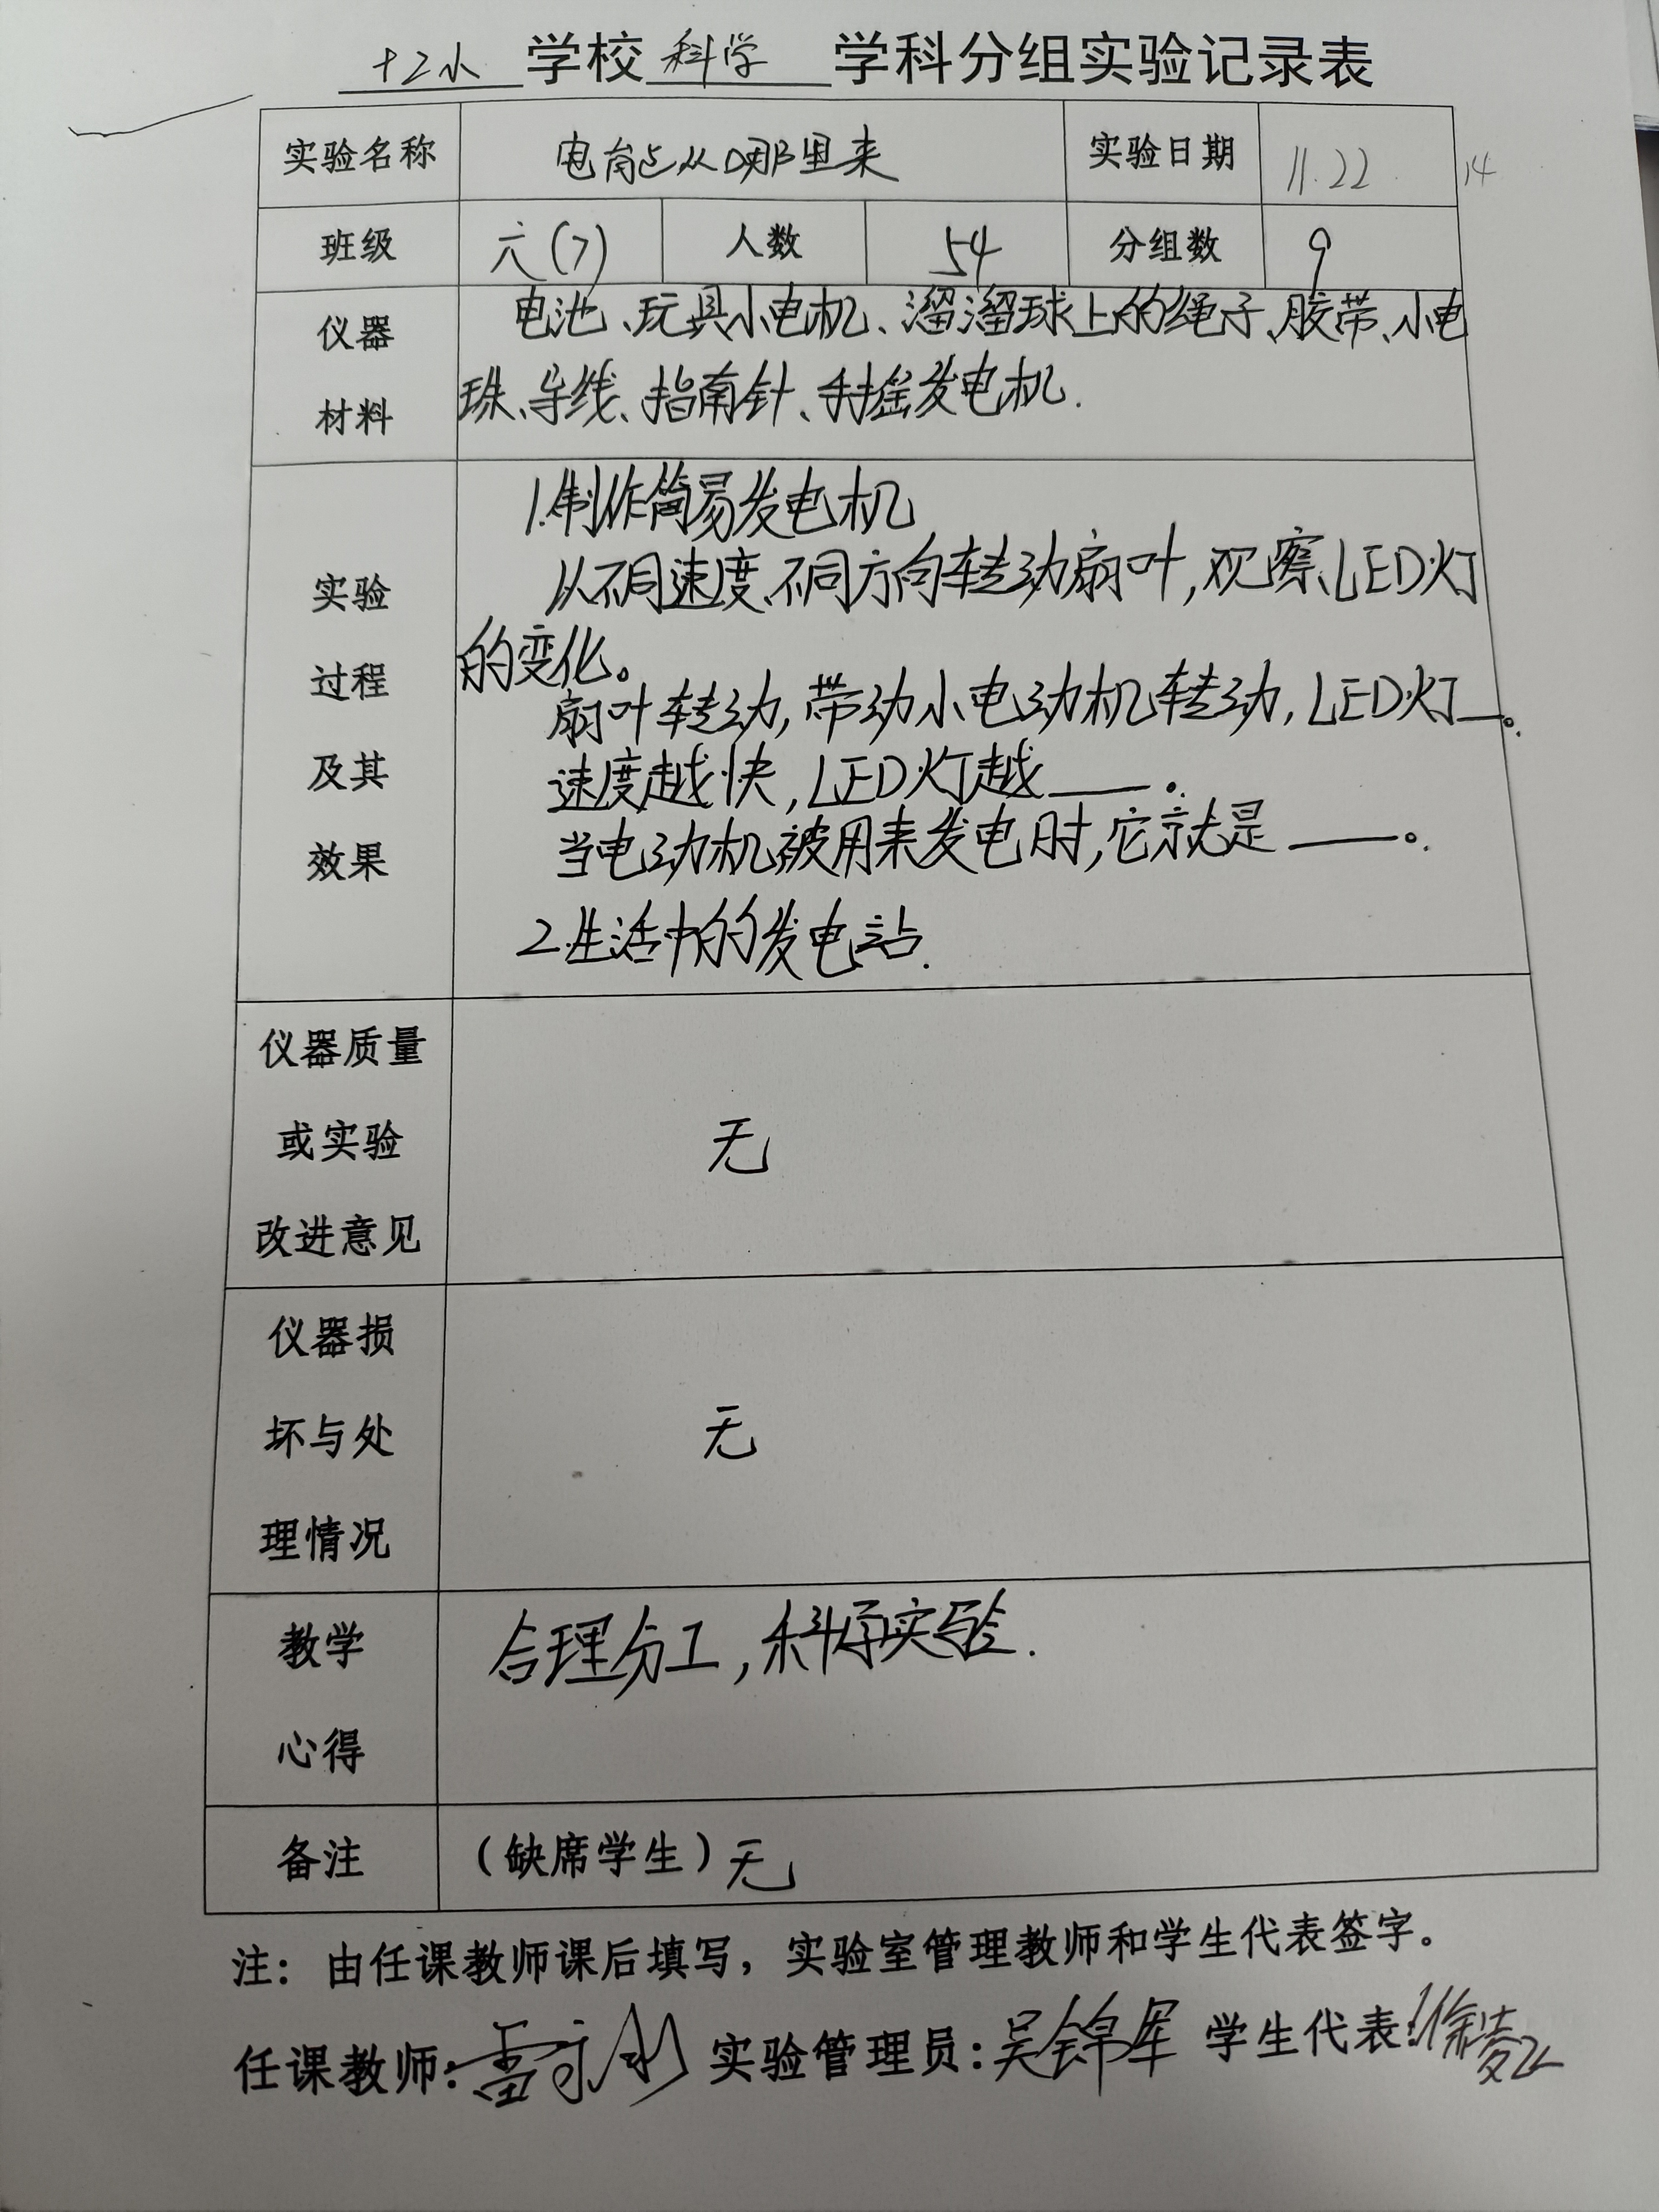 十2小 学校 科学 学科分组实验记录表
实验名称 电能从哪里来 实验日期 11.22. 14
班级 六(7) 人数 54 分组数 9
仪器材料
电池、玩具小电机、溜溜球上的绳子、胶带、小电
珠、导线、指南针、手摇发电机.
实验过程及其效果
1.制作简易发电机
从不同速度、不同方向转动扇叶,观察LED灯
的变化。
扇叶转动,带动小电动机转动,LED灯__。
速度越快,LED灯越____。
当电动机被用来发电时,它就是____。
2.生活中的发电站.
仪器质量
或实验
改进意见
无
仪器损
坏与处
理情况
无
教学
心得
合理分工,科学实验.
备注 (缺席学生)无
注:由任课教师课后填写,实验室管理教师和学生代表签字。
任课教师: 实验管理员:吴锦军 学生代表: